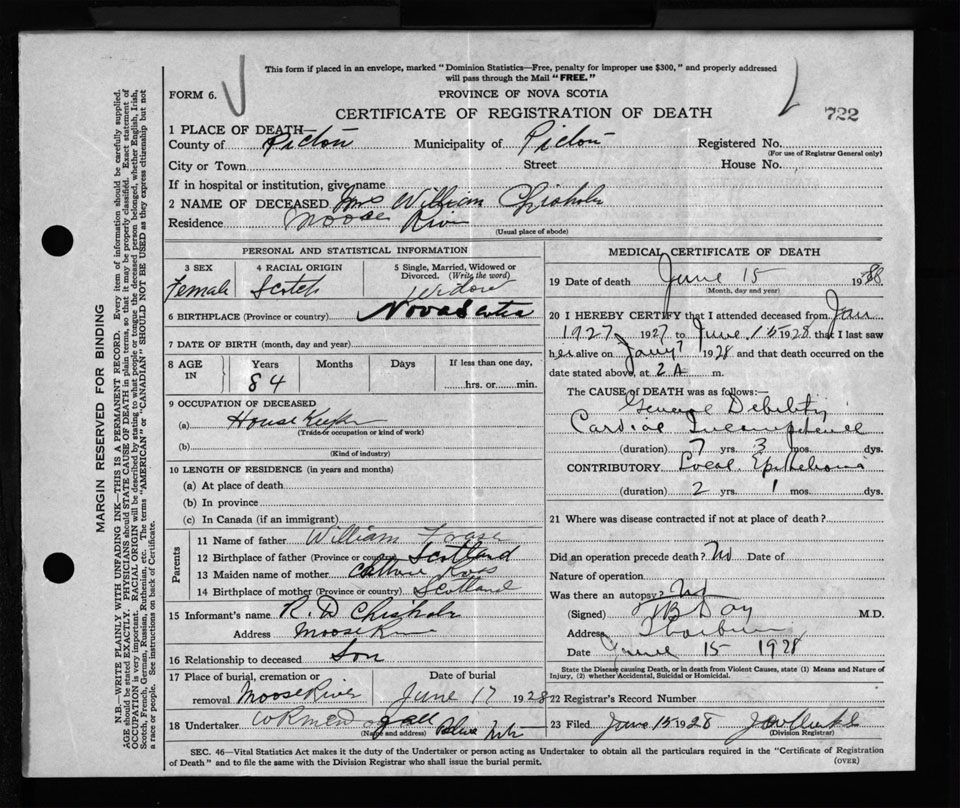 This form if placed in an envelope, marked "Dominion Statistics—Free, penalty for improper use $300," and properly addressed
will pass through the Mail "FREE."
FORM 6.
PROVINCE OF NOVA SCOTIA
CERTIFICATE OF REGISTRATION OF DEATH
722
1 PLACE OF DEATH—
County of Pictou Municipality of Pictou Registered No.
(For use of Registrar General only)
City or Town Street House No.
If in hospital or institution, give name
2 NAME OF DECEASED Mrs William Chisholm
Residence Moose River
(Usual place of abode)
PERSONAL AND STATISTICAL INFORMATION
3 SEX 4 RACIAL ORIGIN 5 Single, Married, Widowed or Divorced. (Write the word)
Female Scotch Widow
6 BIRTHPLACE (Province or country) Nova Scotia
7 DATE OF BIRTH (month, day and year)
8 AGE IN Years Months Days If less than one day,
84 hrs. or min.
9 OCCUPATION OF DECEASED
(a) House Keeper
(Trade or occupation or kind of work)
(b)
(Kind of industry)
10 LENGTH OF RESIDENCE (in years and months)
(a) At place of death
(b) In province
(c) In Canada (if an immigrant)
Parents
11 Name of father William Fraser
12 Birthplace of father (Province or country) Scotland
13 Maiden name of mother Ross
14 Birthplace of mother (Province or country) Scotland
15 Informant's name R. D Chisholm
Address Moose River
16 Relationship to deceased Son
17 Place of burial, cremation or removal Moose River
Date of burial June 17 1928
18 Undertaker
(Name and address)
MEDICAL CERTIFICATE OF DEATH
19 Date of death June 15 1928
(Month, day and year)
20 I HEREBY CERTIFY that I attended deceased from Jan
1927 1927 to June 15 1928 that I last saw
her alive on 1928 and that death occurred on the
date stated above, at 2 A m.
The CAUSE OF DEATH was as follows:—
General Debility
Cardiac Incompetence
(duration) 7 yrs. 3 mos. dys.
CONTRIBUTORY Local Epithelioma
(duration) 2 yrs. 1 mos. dys.
21 Where was disease contracted if not at place of death?
Did an operation precede death? No Date of
Nature of operation
Was there an autopsy? No
(Signed) Day M.D.
Address Thorburn
Date June 15 1928
State the Disease causing Death, or in death from Violent Causes, state (1) Means and Nature of
Injury, (2) whether Accidental, Suicidal or Homicidal.
22 Registrar's Record Number
23 Filed June 15 1928
(Division Registrar)
SEC. 46—Vital Statistics Act makes it the duty of the Undertaker or person acting as Undertaker to obtain all the particulars required in the "Certificate of Registration
of Death" and to file the same with the Division Registrar who shall issue the burial permit.
(OVER)
MARGIN RESERVED FOR BINDING
N.B.—WRITE PLAINLY WITH UNFADING INK—THIS IS A PERMANENT RECORD. Every item of information should be carefully supplied.
AGE should be stated EXACTLY. PHYSICIANS should STATE CAUSE OF DEATH in plain terms, so that it may be properly classified. Exact statement of
OCCUPATION is very important. RACIAL ORIGIN will be described by stating to what people or tongue the deceased person belonged, whether English, Irish,
Scotch, French, German, Russian, Ruthenian, etc. The terms "AMERICAN" or "CANADIAN" SHOULD NOT BE USED as they express citizenship but not
a race or people. See instructions on back of Certificate.